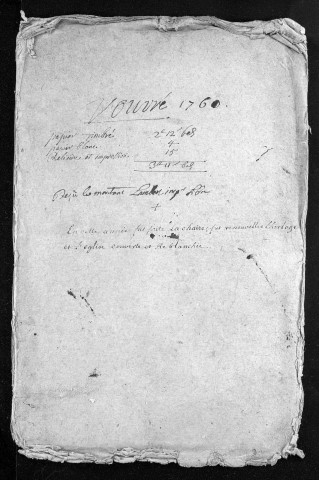 Vouvré 1760.
papier timbré 2# 12s 6d 8
papier blanc 4
Reliure et impression 15
3# 11s 6d 8
Reçu le montant
+
En cette année fut faite la chaire, fut renouvellée l'horloge
et l'eglise couverte et reblanchie